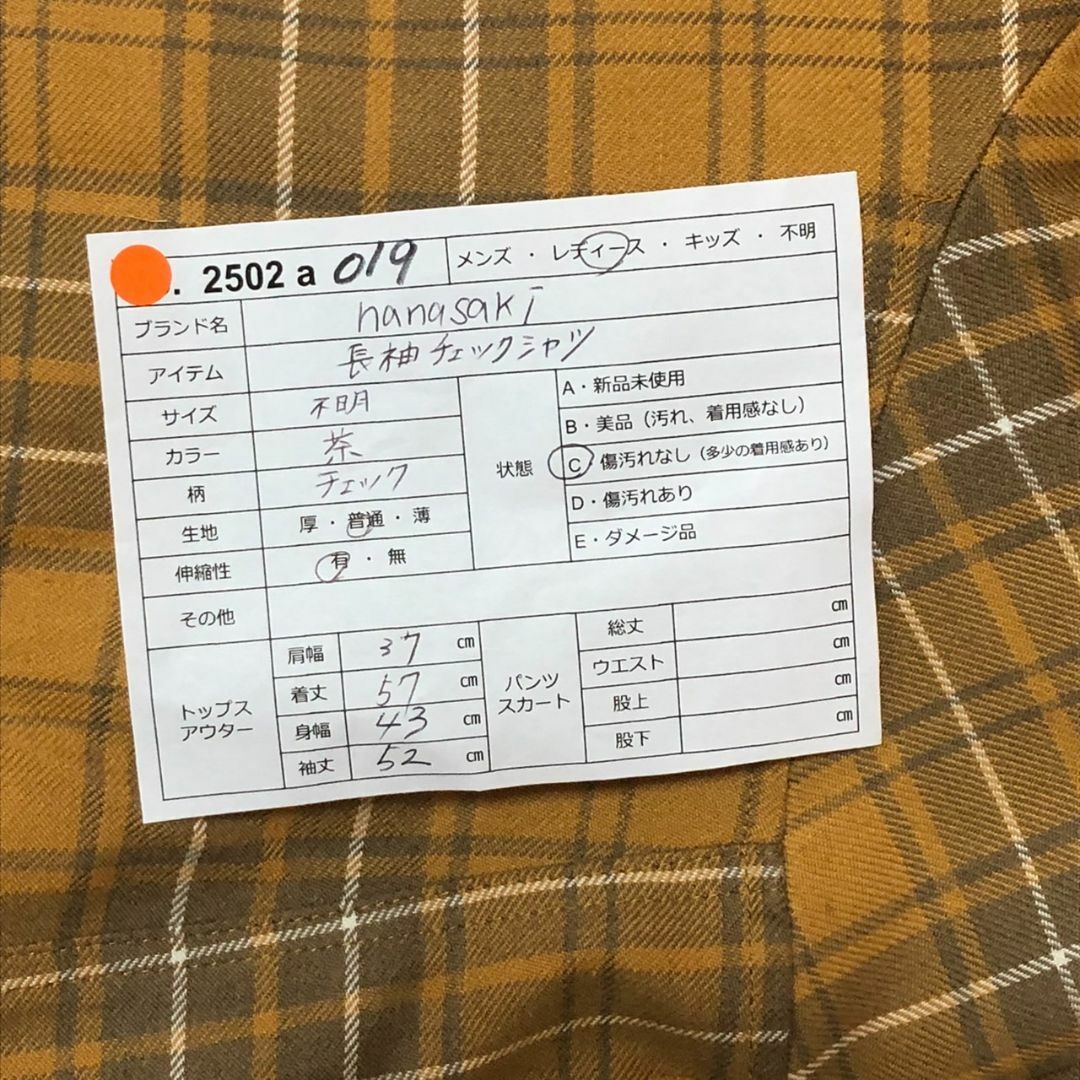 . 2502 a 019
メンズ ・ レディース ・ キッズ ・ 不明
ブランド名 nanasaki
アイテム 長袖チェックシャツ
サイズ 不明
カラー 茶
柄 チェック
生地 厚 ・ 普通 ・ 薄
伸縮性 有 ・ 無
状態
A・新品未使用
B・美品（汚れ、着用感なし）
C 傷汚れなし（多少の着用感あり）
D・傷汚れあり
E・ダメージ品
その他
トップス
アウター
肩幅 37 cm
着丈 57 cm
身幅 43 cm
袖丈 52 cm
パンツ
スカート
総丈 cm
ウエスト cm
股上 cm
股下 cm